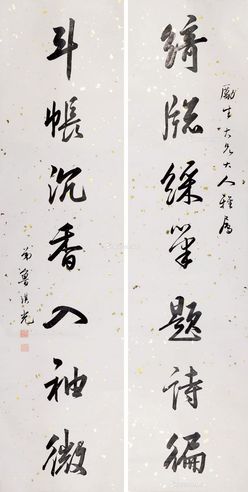 綺牎綵筆題詩徧
勵生大兄大人雅屬
斗帳沉香入袖微
弟魯琪光